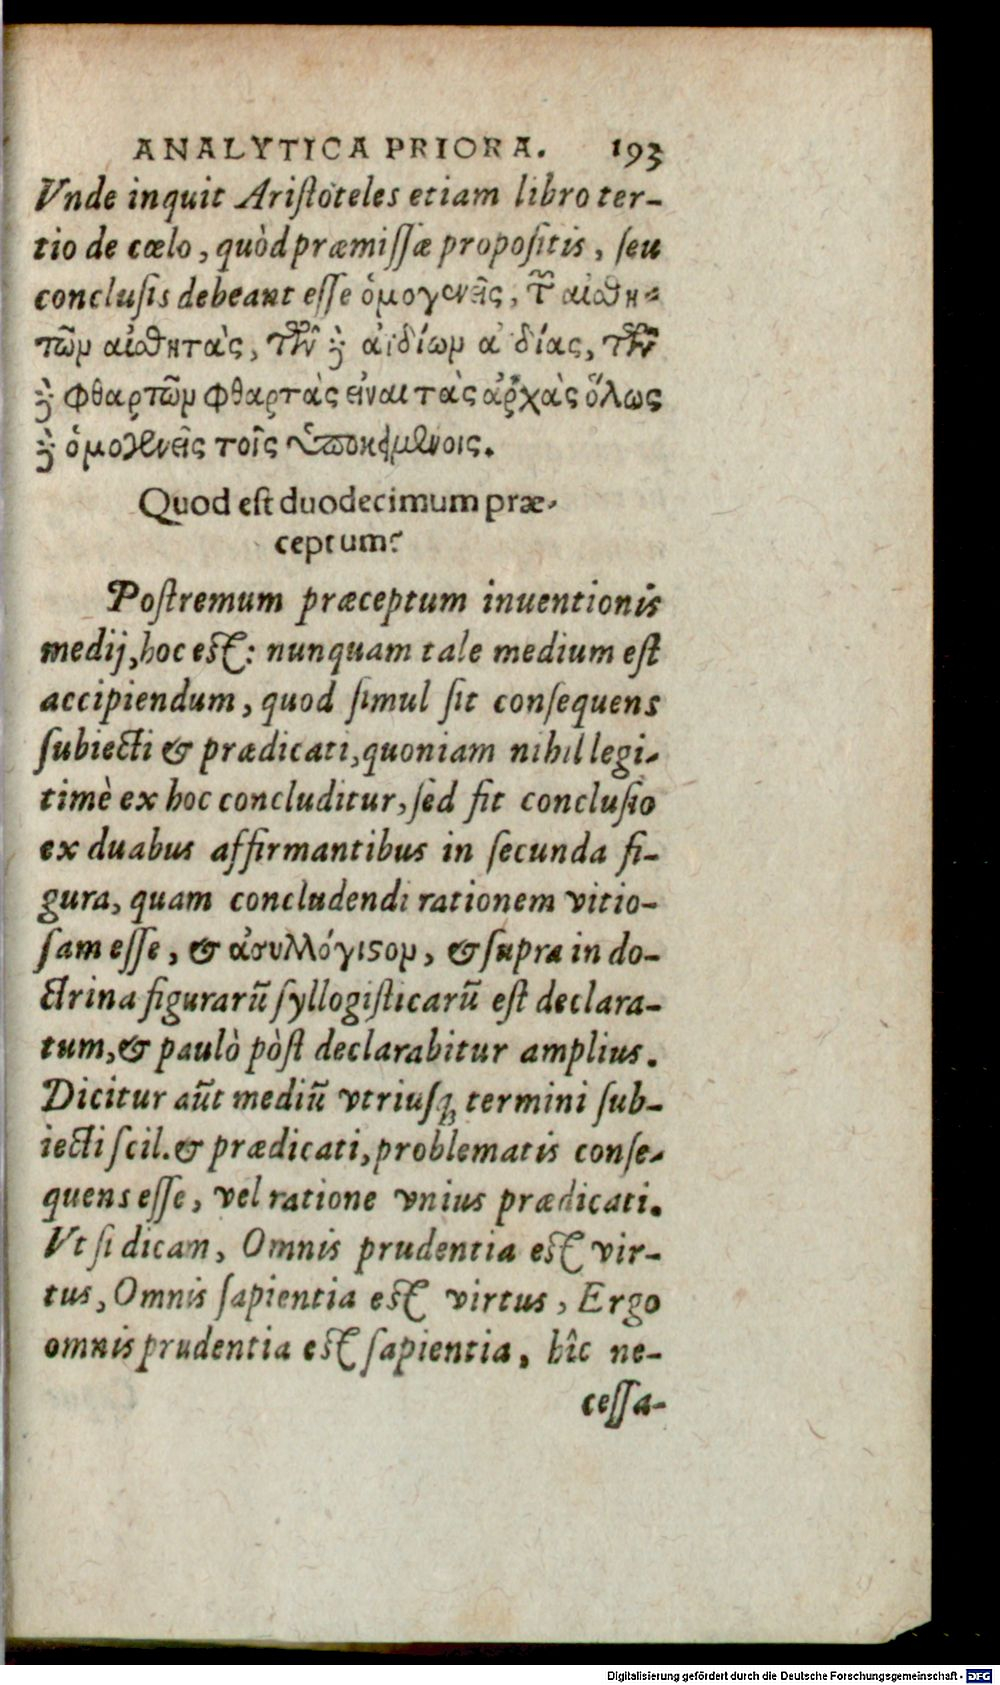 ANALYTICA PRIORA. 193
Vnde inquit Aristoteles etiam libro ter-
tio de cœlo, quòd præmissæ propositis, seu
conclusis debeant esse ὁμογενεῖς, τ̃ αἰσθη-
τῶμ αἰσθητὰς, τῶν καὶ ἀϊδίωμ ἀϊδίας, τῶν
καὶ φθαρτῶμ φθαρτὰς εἶναι τὰς ἀρχὰς ὅλως
καὶ ὁμογενεῖς τοῖς ὑποκειμένοις.
Quod est duodecimum præ-
ceptum?
Postremum præceptum inuentionis
medij, hoc est: nunquam tale medium est
accipiendum, quod simul sit consequens
subiecti & prædicati, quoniam nihil legi-
timè ex hoc concluditur, sed fit conclusio
ex duabus affirmantibus in secunda fi-
gura, quam concludendi rationem vitio-
sam esse, & ἀσυλλόγιστομ, & supra in do-
ctrina figurarũ syllogisticarũ est declara-
tum, & paulò pòst declarabitur amplius.
Dicitur aũt mediũ vtriusq; termini sub-
iecti scil. & prædicati, problematis conse-
quens esse, vel ratione vnius prædicati.
Vt si dicam, Omnis prudentia est vir-
tus, Omnis sapientia est virtus, Ergo
omnis prudentia est sapientia, hîc ne-
cessa-
Digitalisierung gefördert durch die Deutsche Forschungsgemeinschaft - DFG